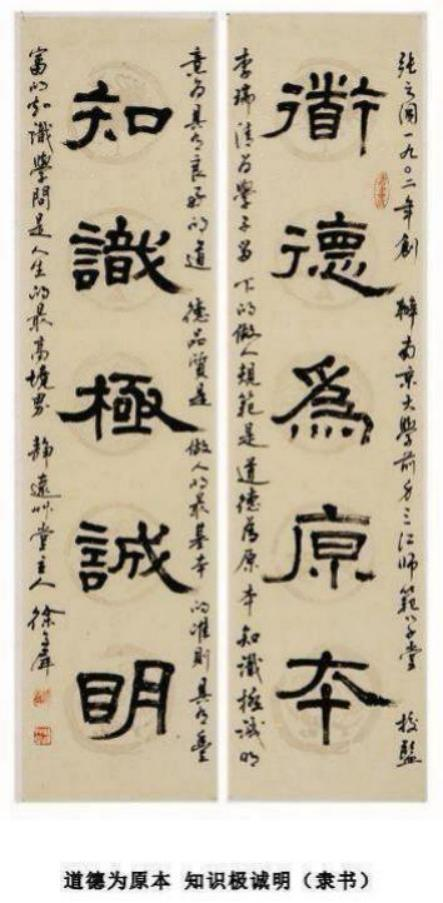 張之洞一九〇二年創辦南京大學前身三江師範學堂 校監
衟德爲原本
李瑞清为學子留下的做人規範是道德為原本 知識極誠明
意为具有良好的道德品質是做人的最基本的准則 具有豐
知識極誠明
富的知識學問是人生的最高境界 静遠艸堂主人 徐
道德为原本 知识极诚明（隶书）